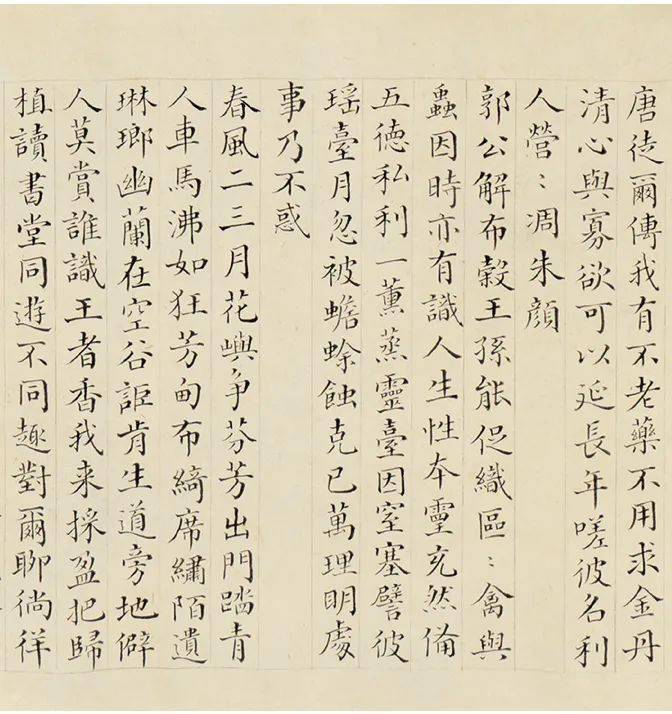 唐徒爾傳我有不老藥不用求金丹
清心與寡欲可以延長年嗟彼名利
人營〻凋朱顔
郭公解布榖王孫能促織區〻禽與
蟲因時亦有識人生性本靈充然備
五德私利一薰蒸靈臺因窒塞譬彼
瑶臺月忽被蟾蜍蝕克已萬理明處
事乃不惑
春風二三月花嶼争芬芳出門踏青
人車馬沸如狂芳甸布綺席繡陌遺
琳瑯幽蘭在空谷詎肯生道旁地僻
人莫賞誰識王者香我来採盈把歸
植讀書堂同遊不同趣對爾聊徜徉